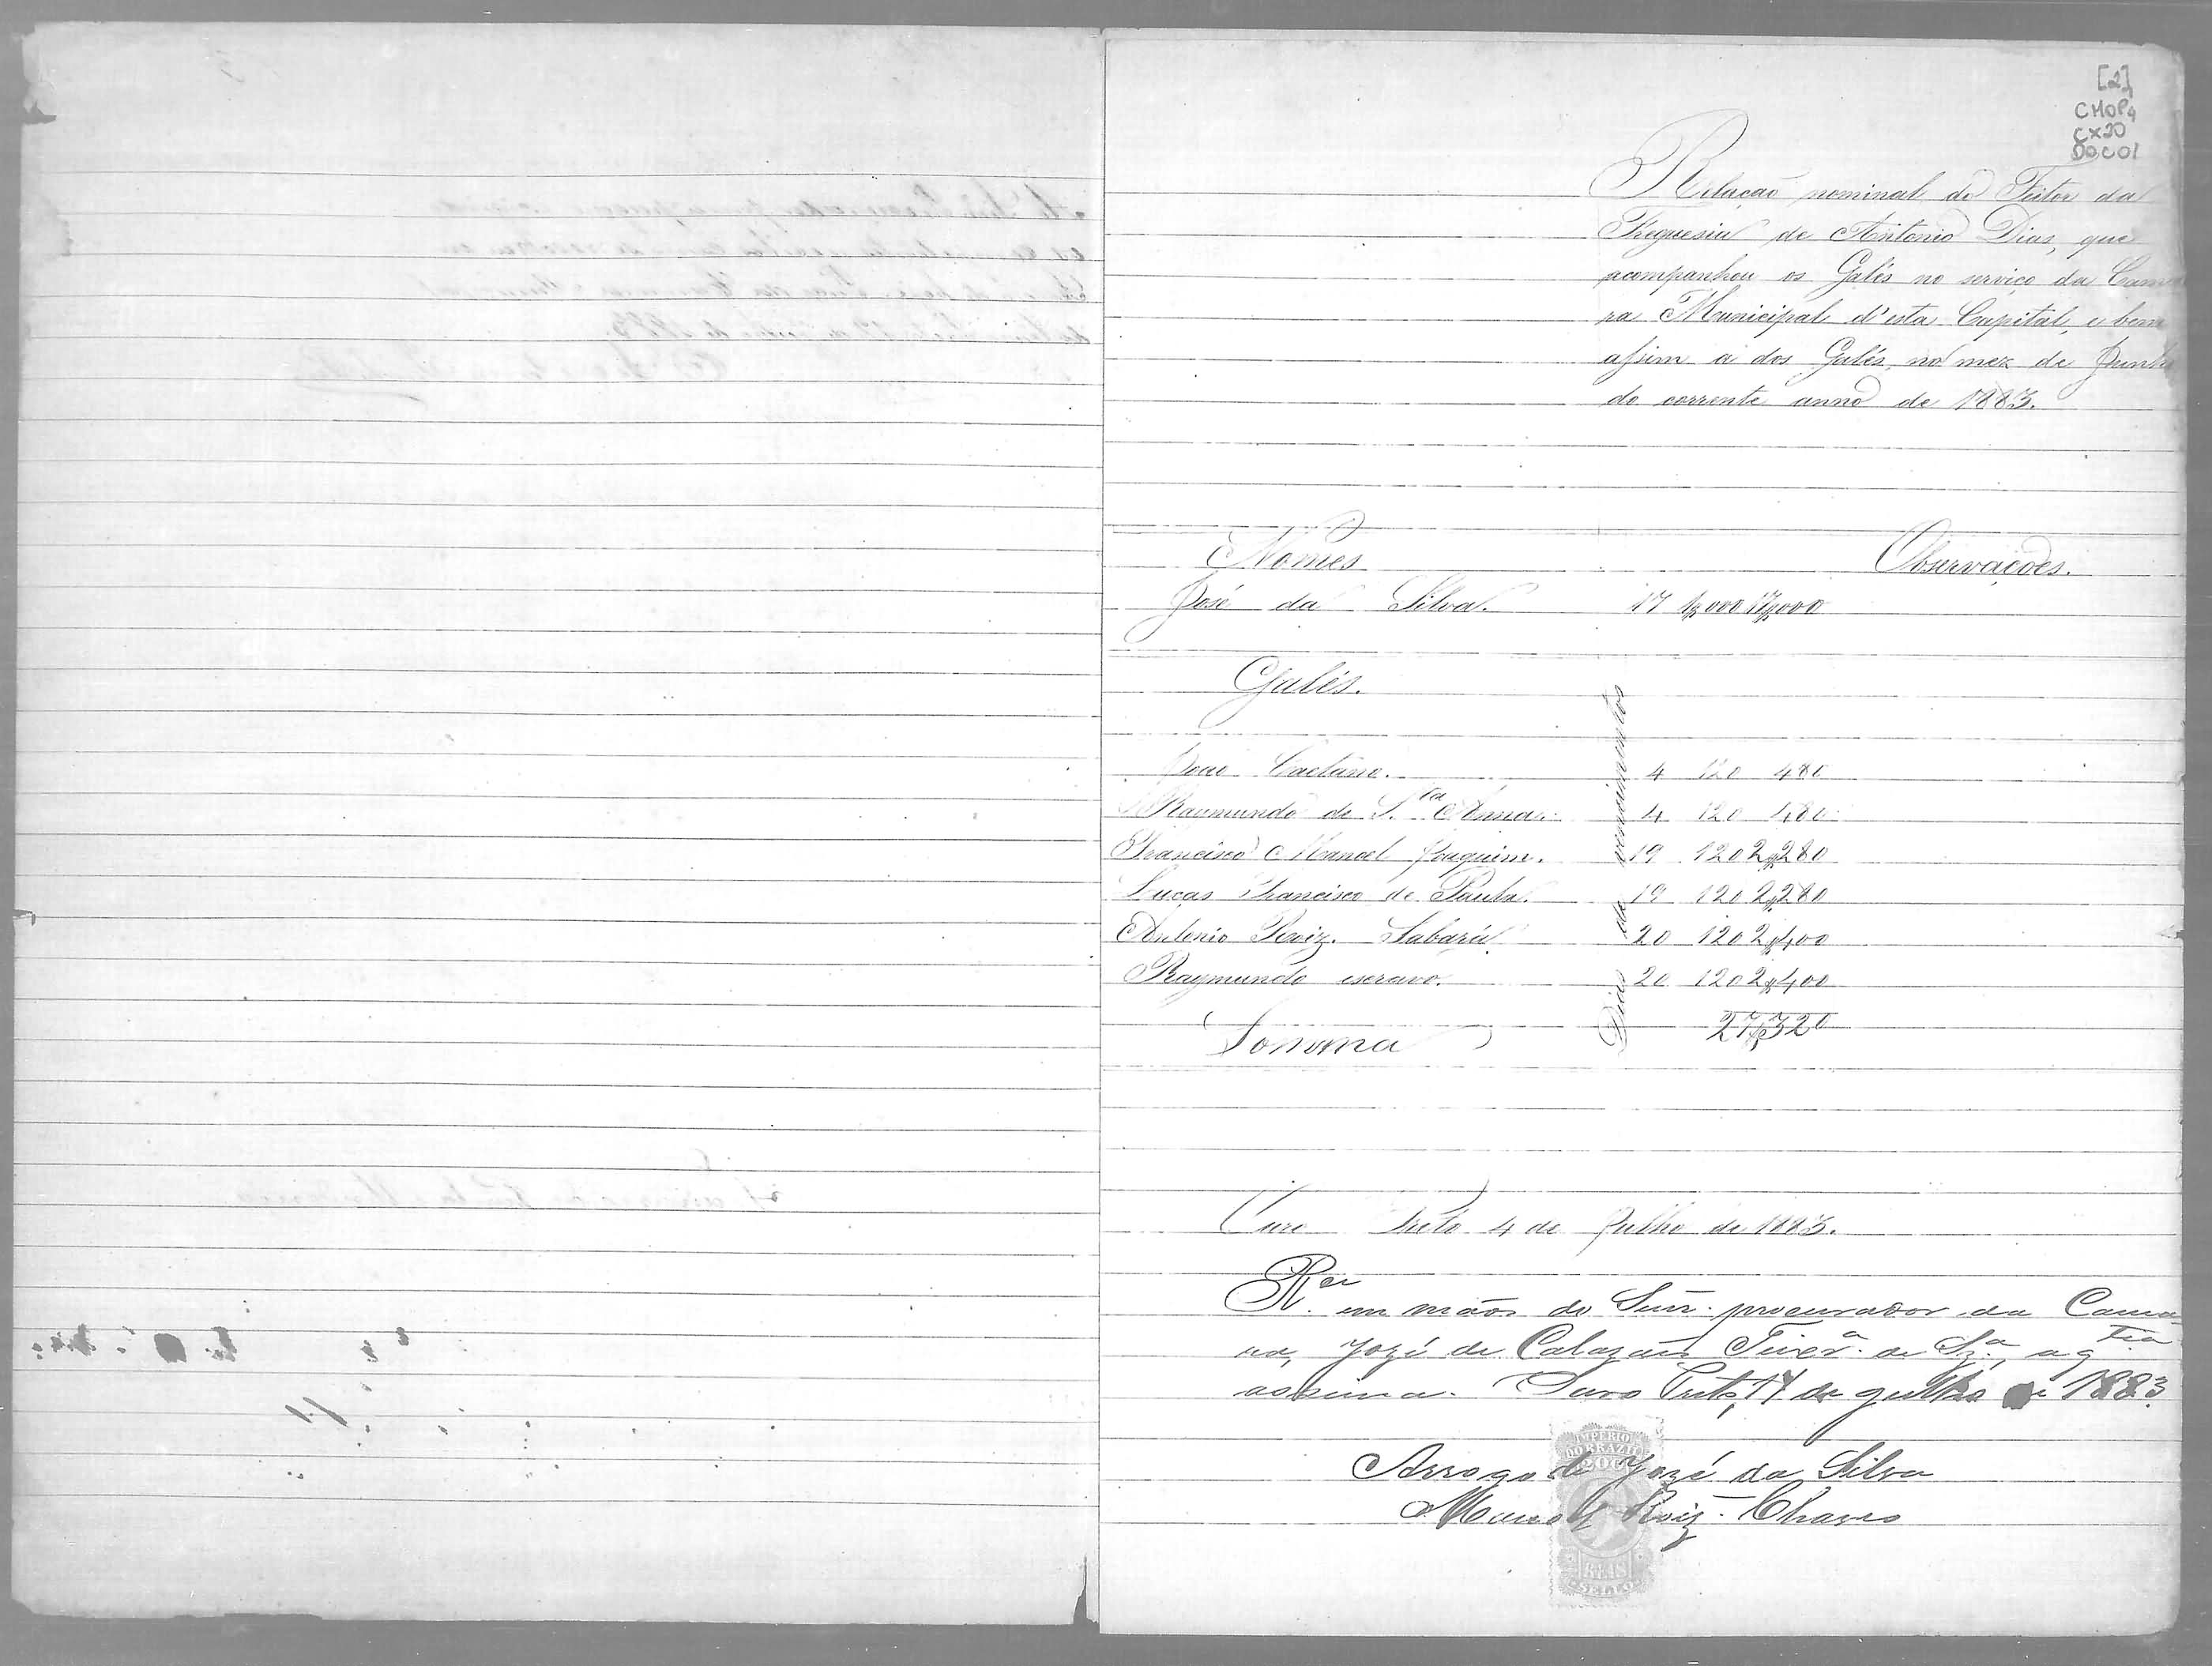 [2]
CMOP
CX20
DOC01
Relação nominal do Feitor da
Freguesia de Antonio Dias, que
acompanhou os Galés no serviço da Cama
ra Municipal d'esta Capital, e bem
assim a dos Galés, no mez de Junho
do corrente anno de 1883.
Nomes Observações.
José da Silva. 17 1$000 17$000
Galés.
Dias de vencimentos
João Caetano. 4 120 480
Raymundo de S.ta Anna. 4 120 480
Francisco Manoel Joaquim. 19 120 2$280
Lucas Francisco de Paula. 19 120 2$280
Antonio Roiz. Sabará. 20 120 2$400
Raymundo escravo. 20 120 2$400
Somma 27$320
Ouro Preto 4 de Julho de 1883.
R.ci em mãos do Senr. procurador da Cama
ra, Jozé de Calazans Ferr.a de Sz.a, a q.tia
assima. Ouro Preto, 17 de julho de 1883
IMPERIO
DO BRAZIL
200
Arrogo de Jozé da Silva
Manoel Roiz Chaves
REIS